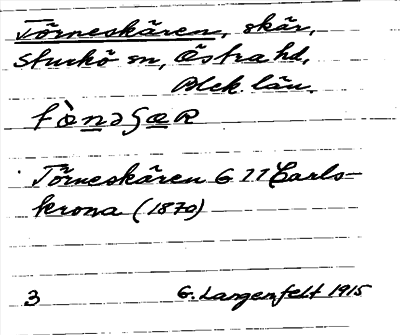 Törneskären, skär,
Sturkö sn, Östra hd,
Blek. län.
Törneskären G 11 Carls-
krona (1870)
3 G. Langenfelt 1915